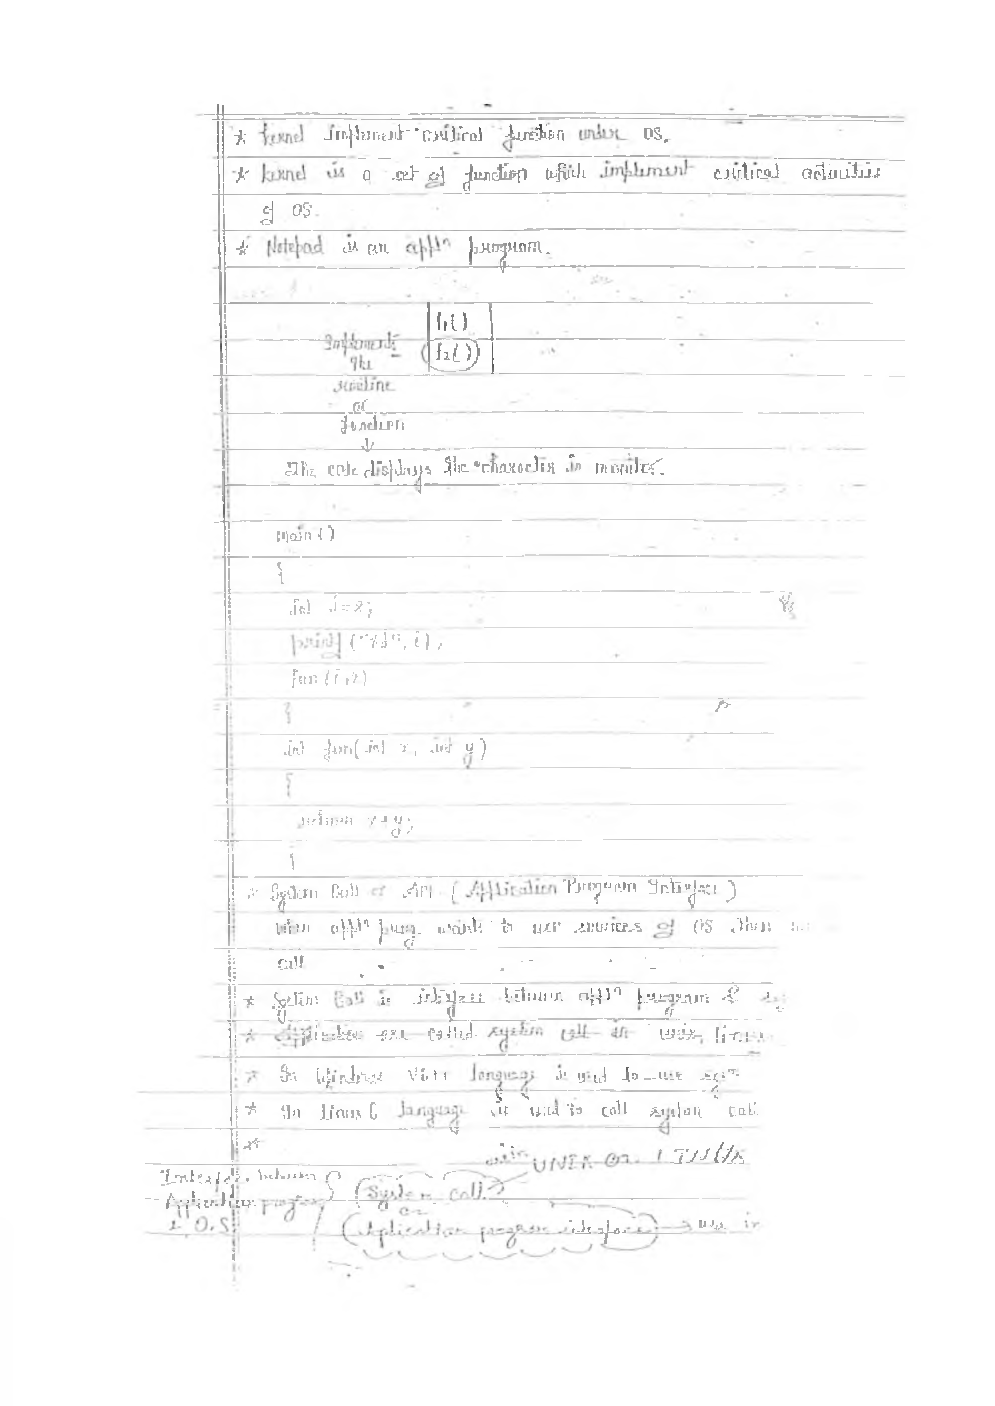 * kernel implement critical function under OS.
* kernel is a set of function which implement critical activities
of OS.
* Notepad is an appln program.
f1()
Implements f2()
the
routine
or
function
↓
The code displays the character in monitor.
main()
{
int i=2;
printf("%d", i);
fun(i,2)
}
int fun(int x, int y)
{
return x+y;
}
* System Call or API (Application Program Interface)
when appln prog. wants to use services of OS then
call
* System Call is interface between appln program &
* are called system call in unix, linux
* In Windows VC++ language is used to use
* In linux C language is used to call system call
*
UNIX or LINUX
Interface between
Application program (System call)
& O.S. or
(Aplication program interface) → use in